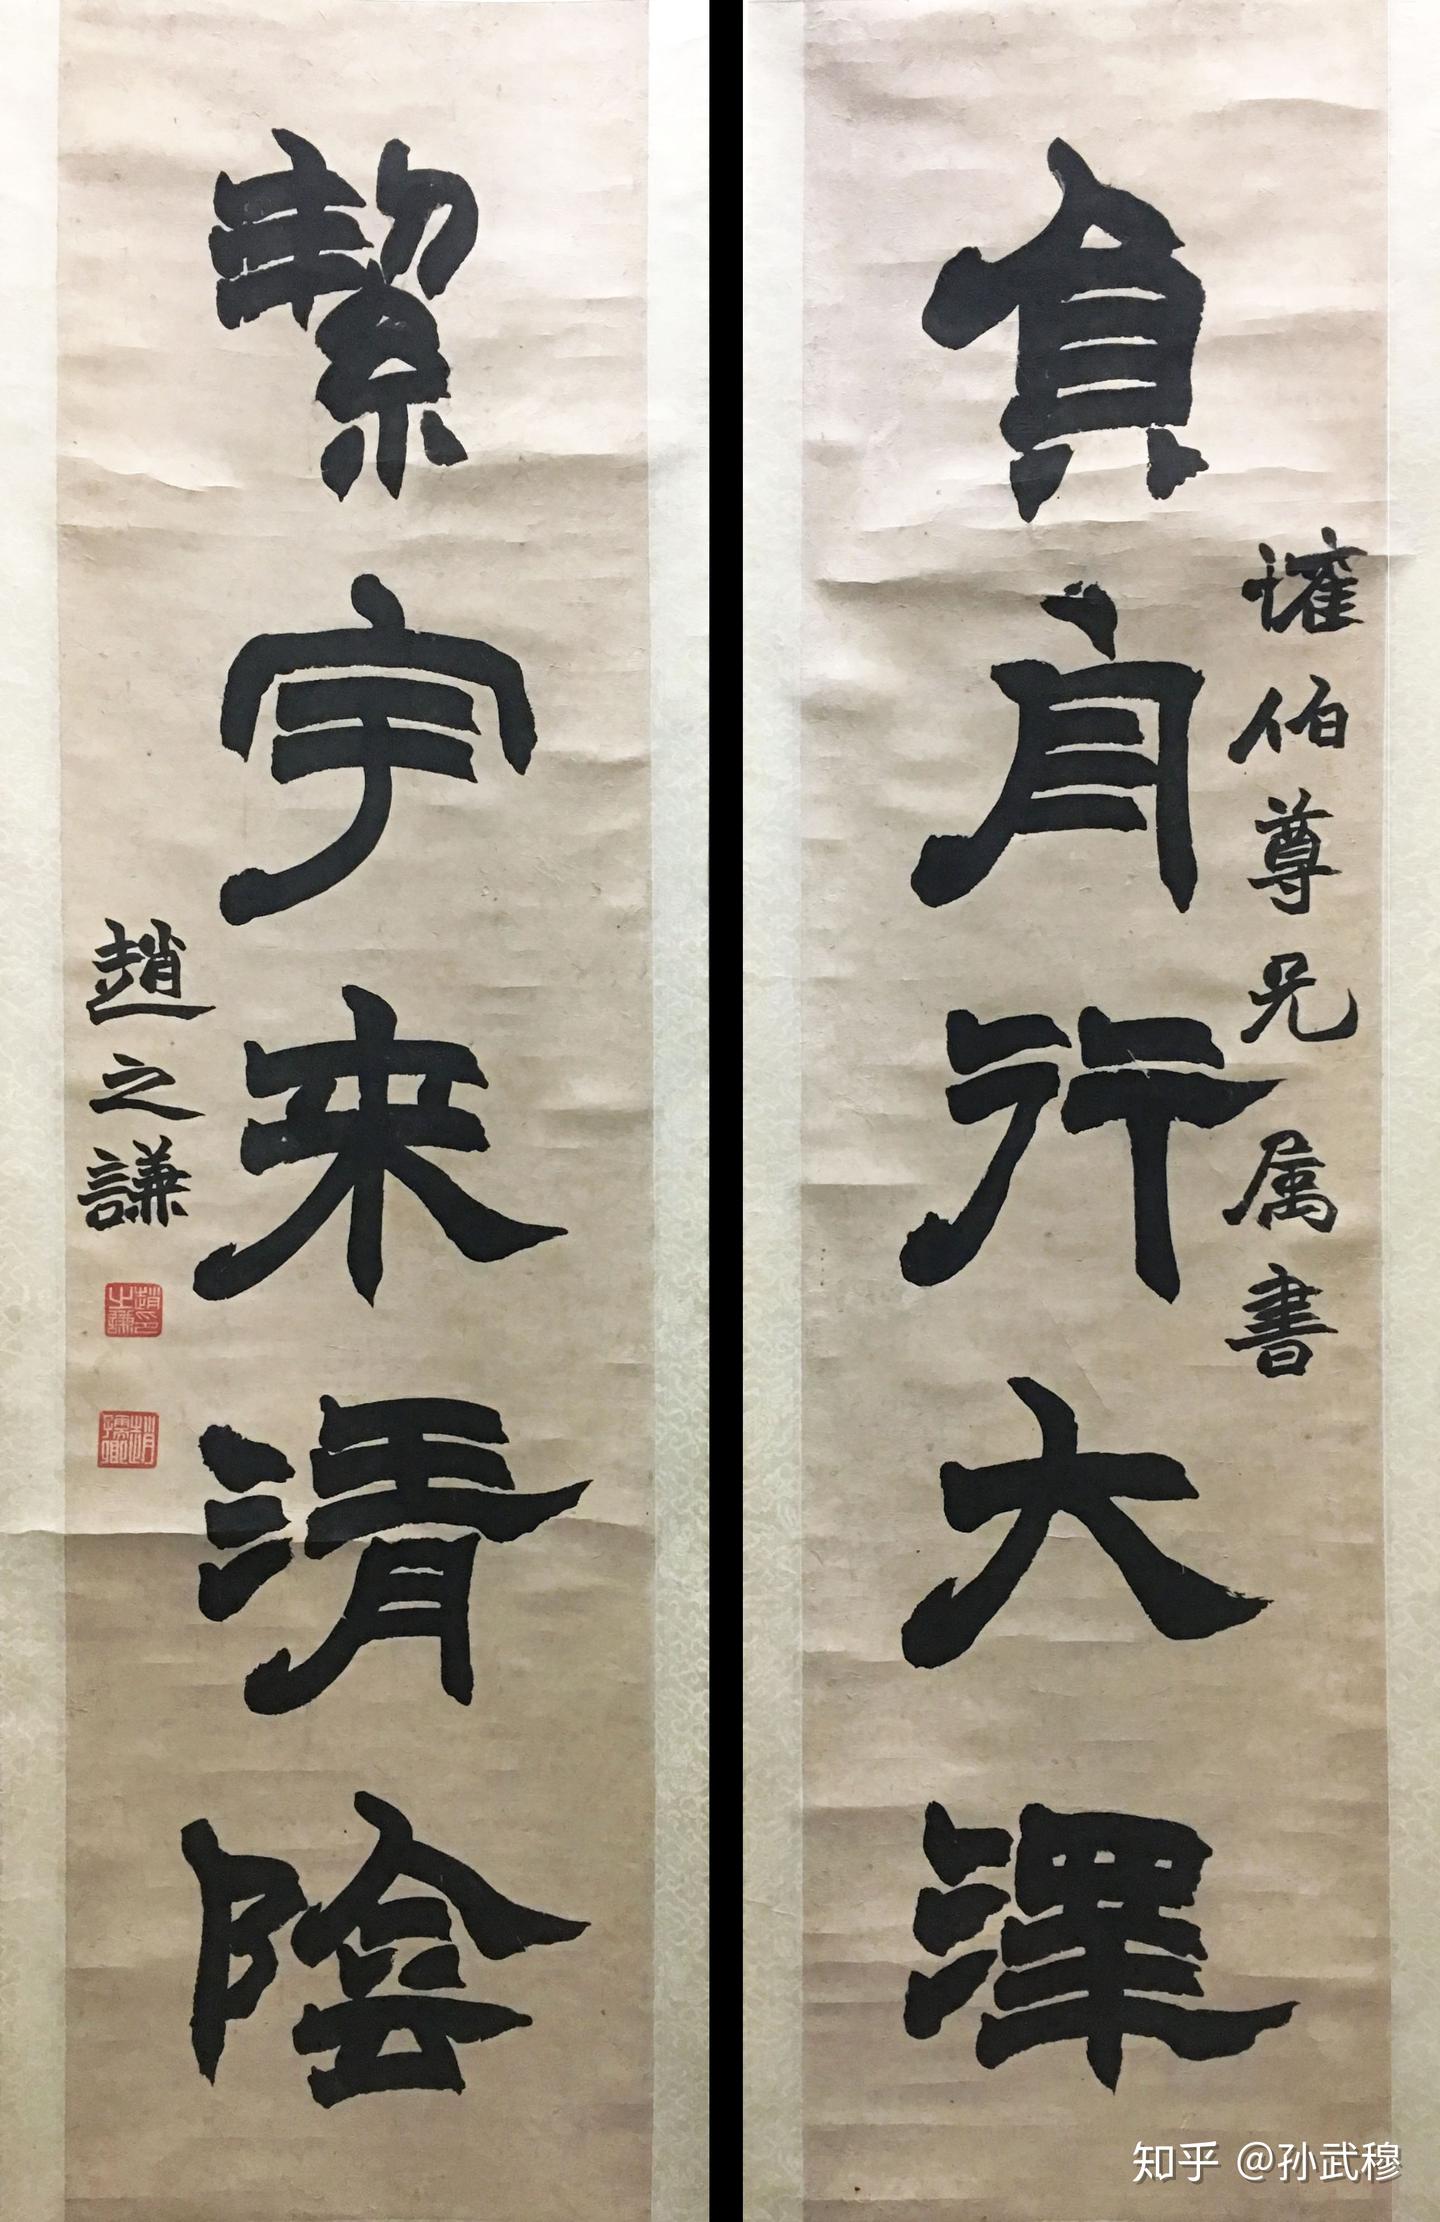 負舟行大澤
伯尊兄属書
絜宇来清陰
趙之謙
趙印之謙
知乎 @孙武穆